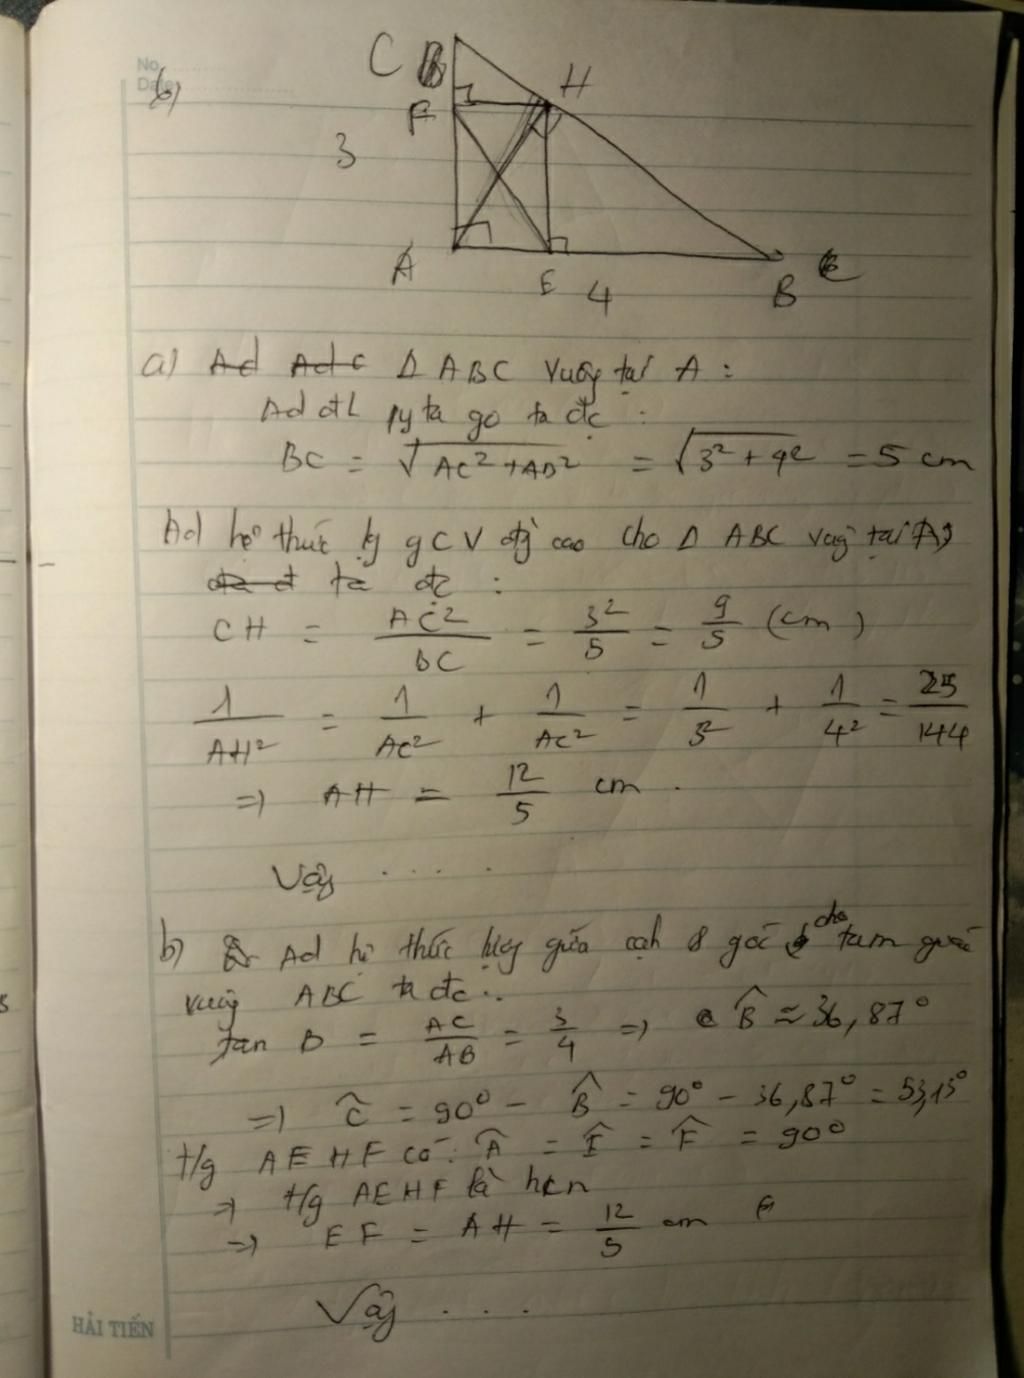 No
Date
6)
C
H
F
3
A
E
4
B
a) Δ ABC vuông tại A :
Ad đL pytago ta đc :
BC = √AC² + AB² = √3² + 4² = 5 cm
Ad hệ thức lg g C V đg cao cho Δ ABC vuôg tại A,
ta đc :
CH = AC²/BC = 3²/5 = 9/5 (cm)
1/AH² = 1/AC² + 1/AC² = 1/3² + 1/4² = 25/144
=> AH = 12/5 cm .
Vậy . . . .
b) Ad hệ thức lượg giữa cạh & góc cho tam giác
vuôg ABC ta đc :
tan B = AC/AB = 3/4 => B̂ ≈ 36,87°
=> Ĉ = 90° - B̂ = 90° - 36,87° = 53,13°
t/g AEHF có : Â = Ê = F̂ = 90°
=> t/g AEHF là hcn
=> EF = AH = 12/5 cm
Vậy . . . .
HẢI TIẾN